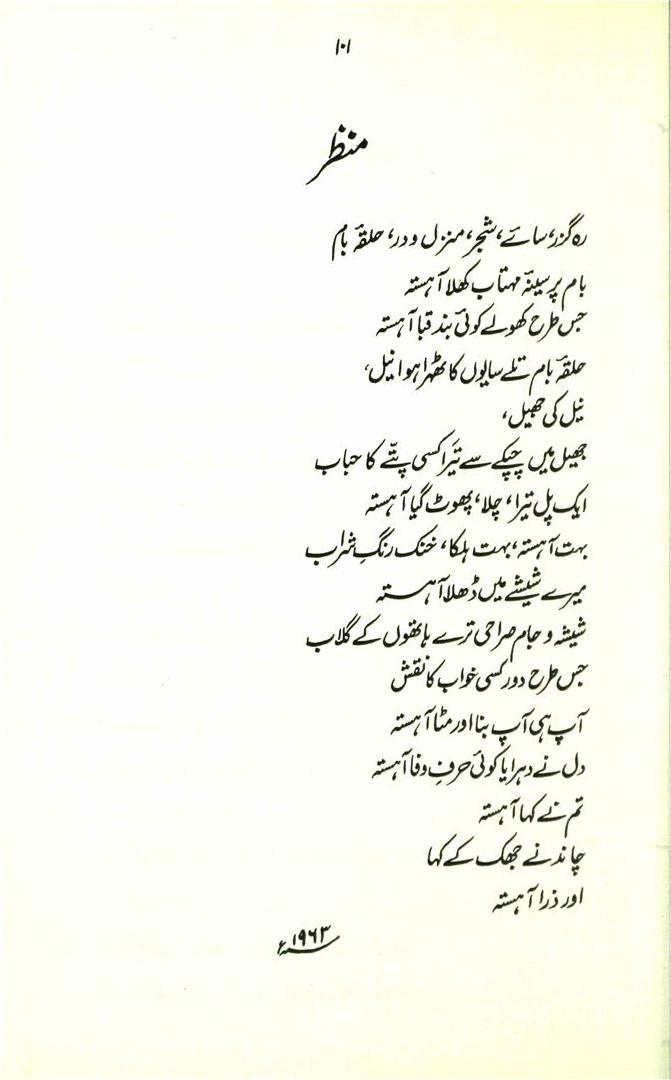 ۱۰۱
منظر
رہ گزر، سائے، شجر، منزل و در، حلقۂ بام
بام پر سینۂ مہتاب کھلا آہستہ
جس طرح کھولے کوئی بند قبا آہستہ
حلقۂ بام تلے سایوں کا ٹھہرا ہوا نیل،
نیل کی جھیل،
جھیل میں چپکے سے تیرا کسی پتّے کا حباب
ایک پل تیرا، چلا، پھوٹ گیا آہستہ
بہت آہستہ، بہت ہلکا، خنک رنگِ شراب
میرے شیشے میں ڈھلا آہستہ
شیشہ و جام صراحی ترے ہاتھوں کے گلاب
جس طرح دور کسی خواب کا نقش
آپ ہی آپ بنا اور مٹا آہستہ
دل نے دہرایا کوئی حرفِ وفا آہستہ
تم نے کہا آہستہ
چاند نے جھک کے کہا
اور ذرا آہستہ
۱۹۶۳ء